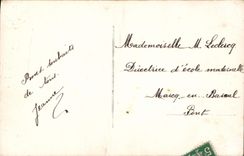 Bons souhaits
de tous
Jeanne
Mademoiselle M. Leclercq
Directrice d'école maternelle
Marcq en Barœul
Pont